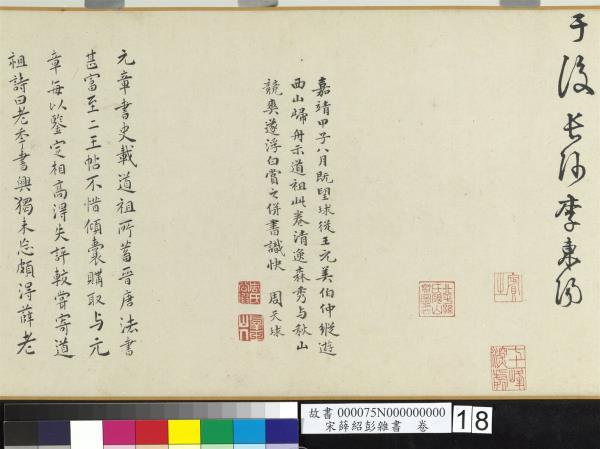 于後長沙李東陽
嘉靖甲子八月既望球從王元美伯仲縱遊
西山歸舟示道祖此卷清逸森秀与秋山
競爽遂浮白賞之併書識快　周天球
元章書史載道祖所蓄晉唐法書
甚富至二王帖不惜傾囊購取与元
章每以鑒定相高得失評較嘗寄道
祖詩曰老來書興獨未忘頗得薛老
故書 000075N000000000
宋薛紹彭雜書　卷
18